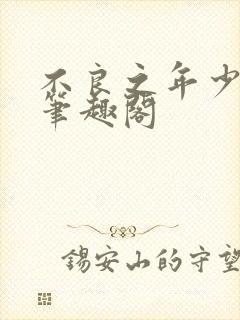 不良之年少
筆趣閣
锡安山的守望